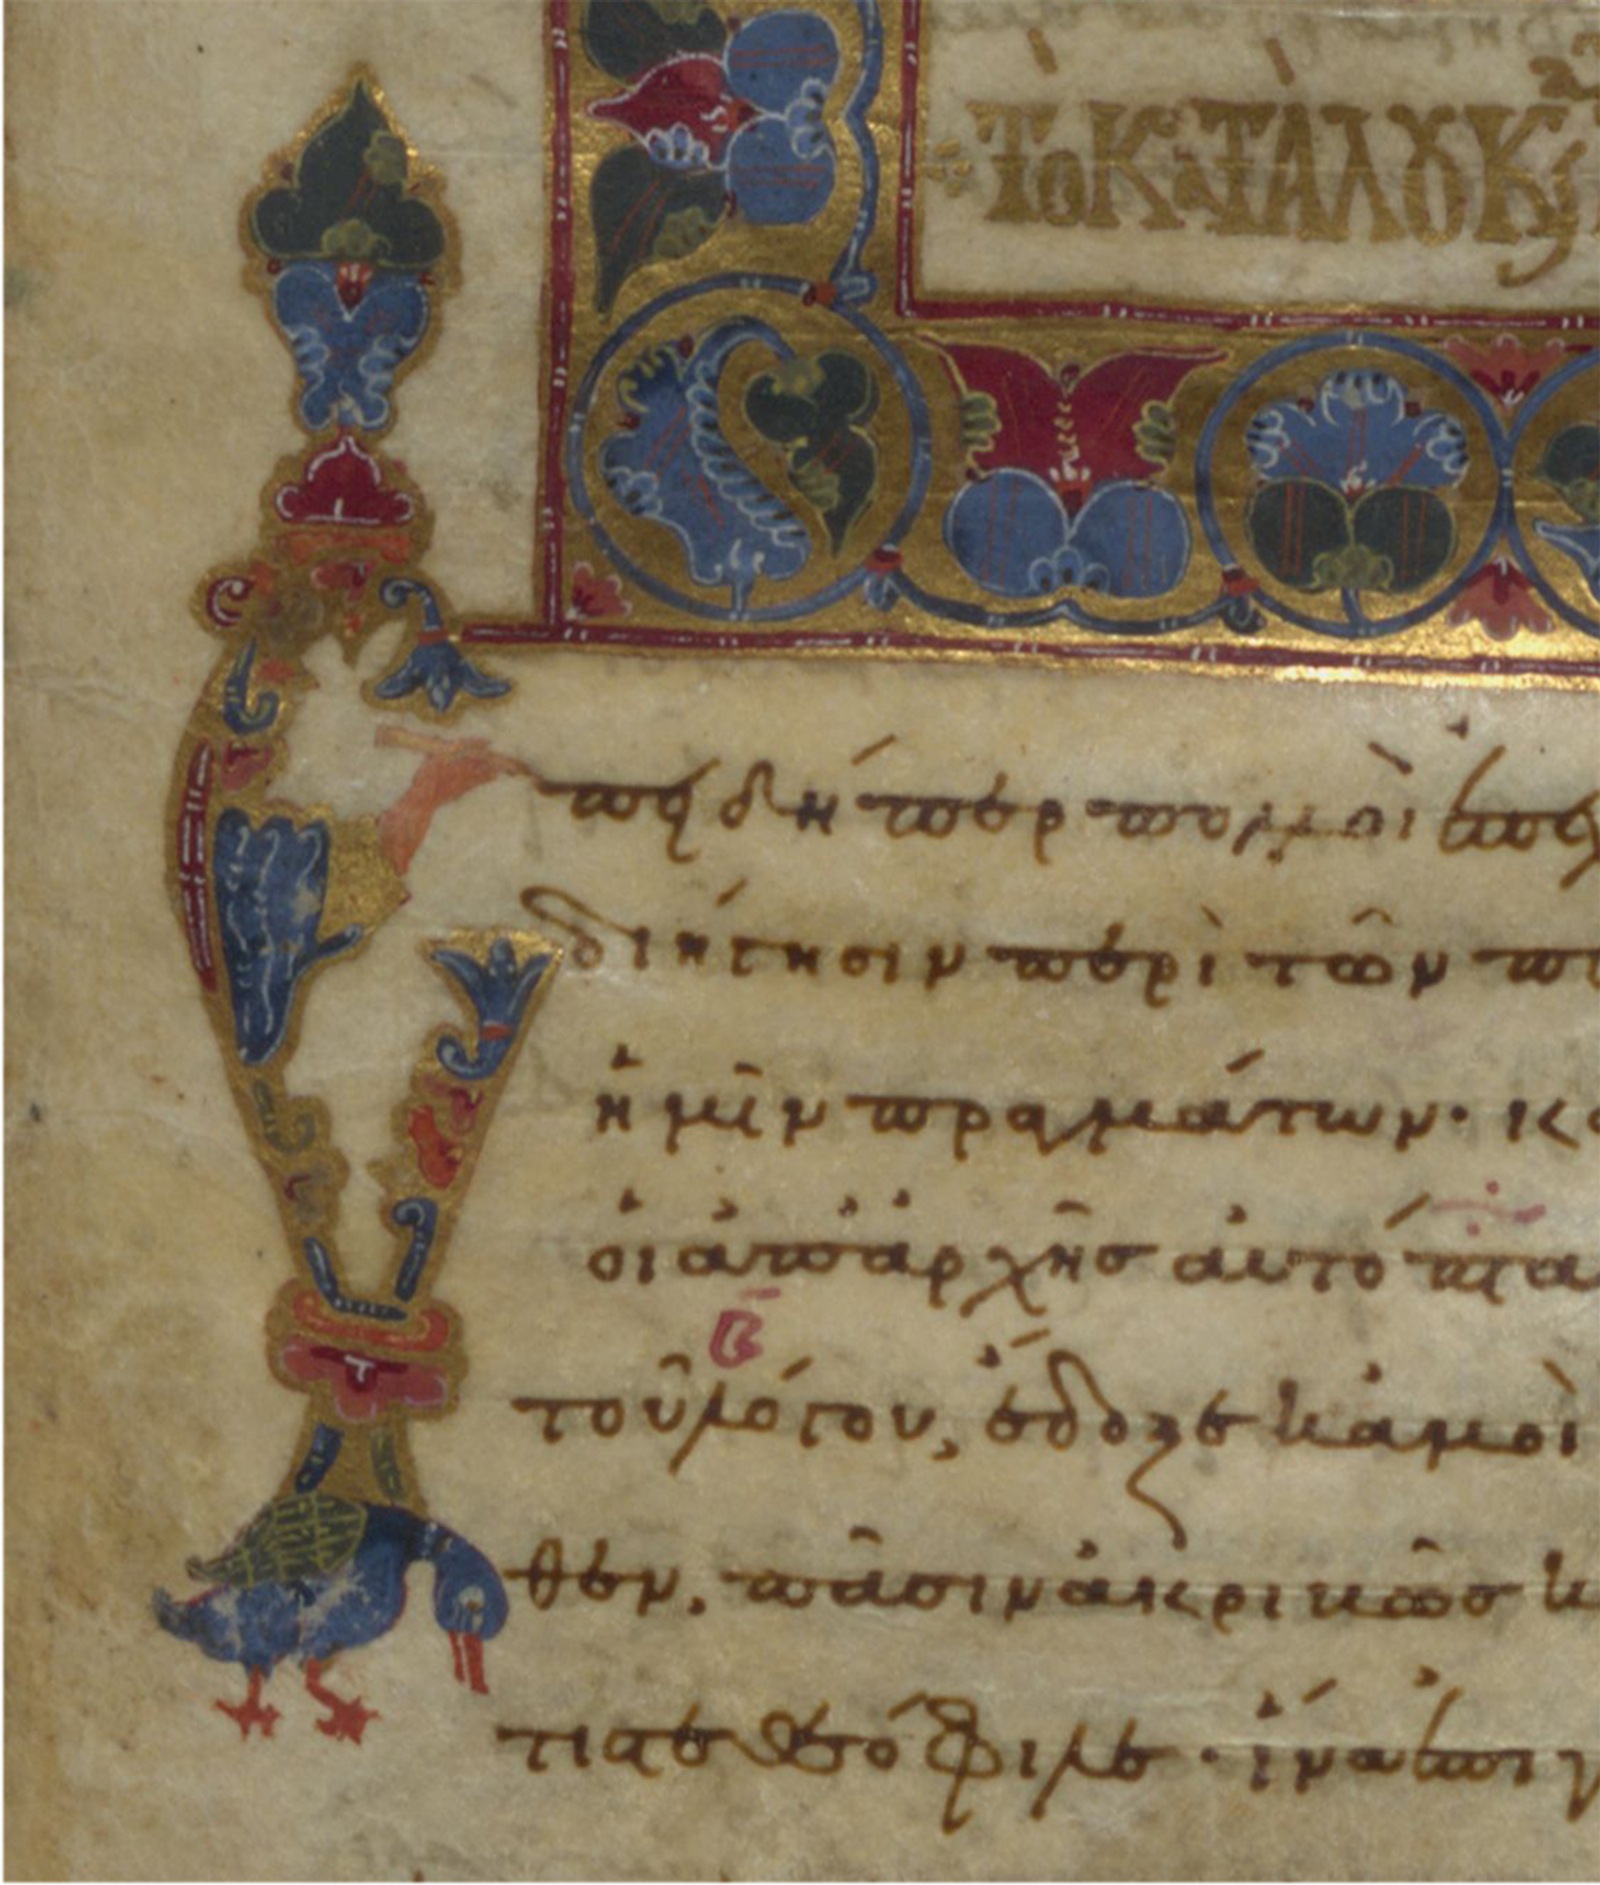 Τὸ Κατὰ Λουκ
πειδήπερ πολλοὶ ἐπε
διήγησιν περὶ τῶν π
ἡμῖν πραγμάτων· κα
οἱ ἀπαρχῆς αὐτόπτα
β
τοῦ λόγου, ἔδοξε κἀμοὶ
θεν, πᾶσιν ἀκριβῶς κ
τιστε Θεόφιλε· ἵνα ἐπιγ